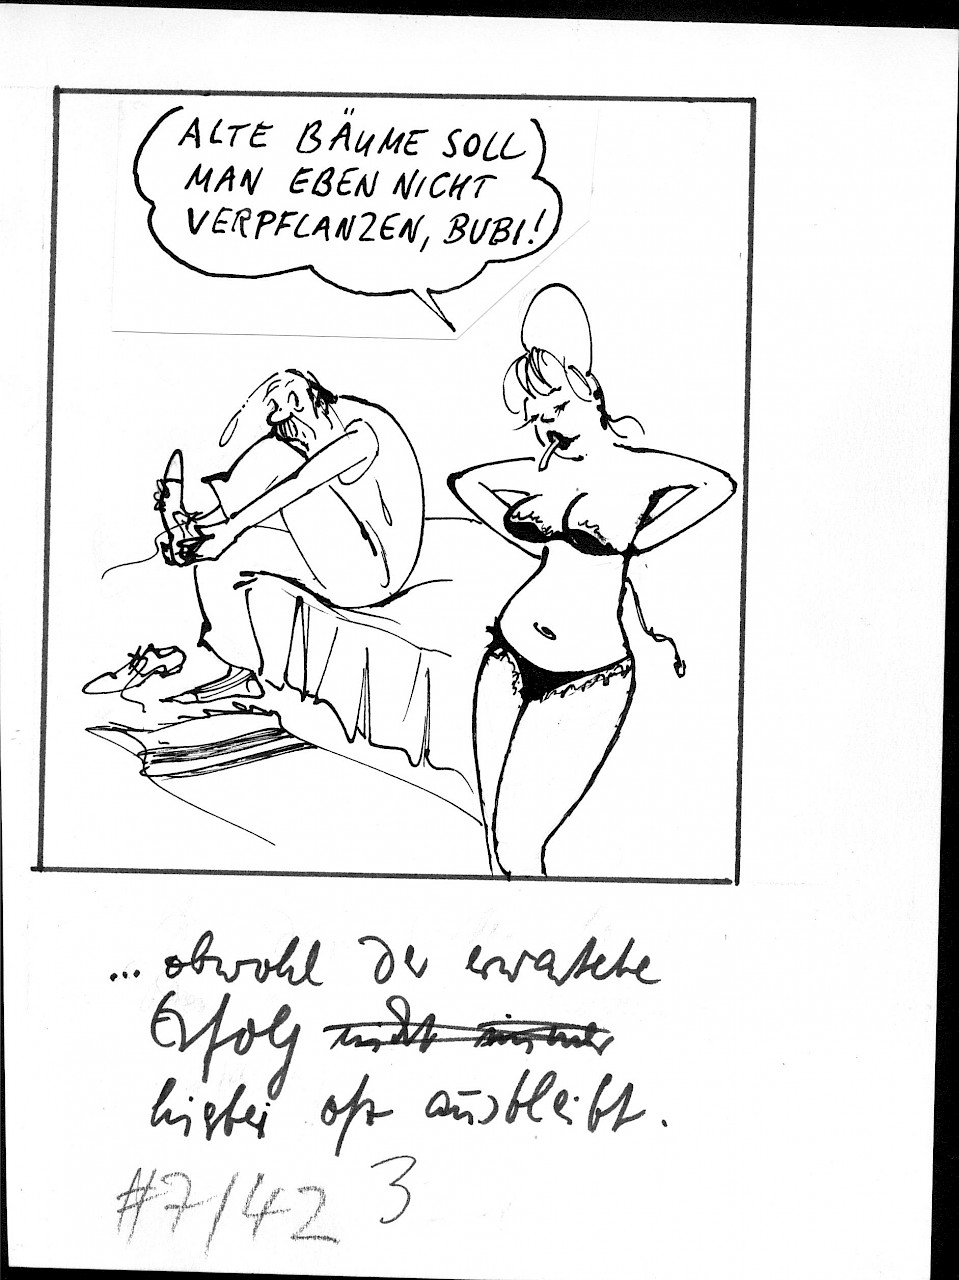 ALTE BÄUME SOLL
MAN EBEN NICHT
VERPFLANZEN, BUBI!
... obwohl der erwartete
Erfolg nicht immer
hierbei oft ausbleibt.
#7/42 3